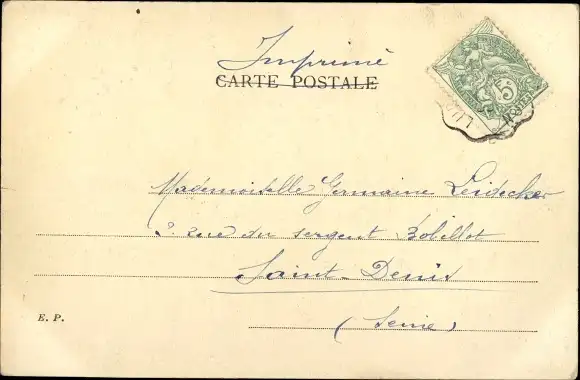 Imprimé
CARTE POSTALE
5c
Mademoiselle Germaine Leidecker
2 rue du sergent Bobillot
Saint-Denis
(Seine)
E. P.